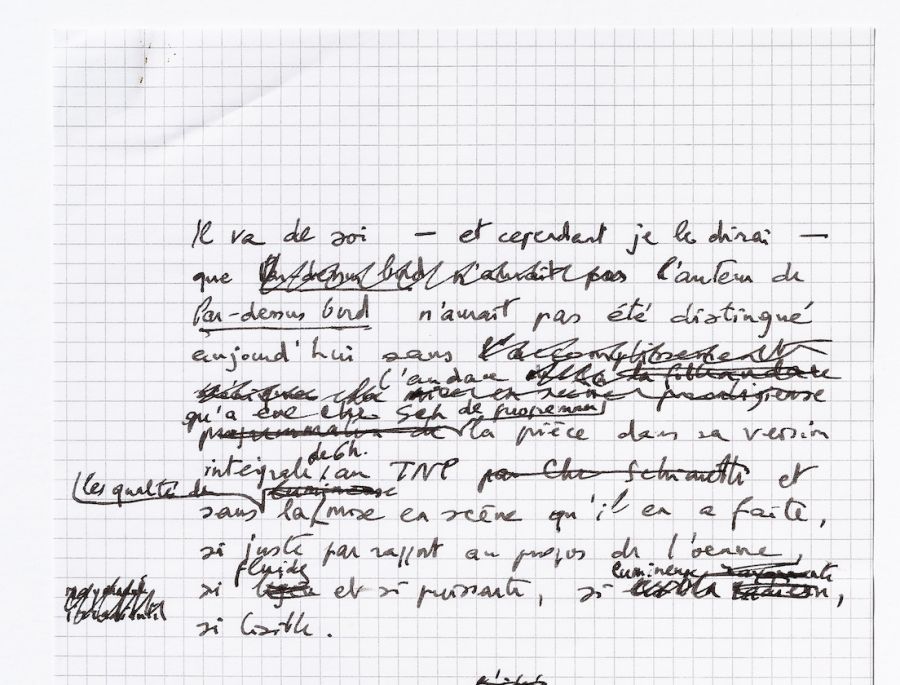 Il va de soi — et cependant je le dirai —
que Par-dessus bord n'aurait pas l'auteur de
Par-dessus bord n'aurait pas été distingué
aujourd'hui sans l'accomplissement
l'audace
mise en scène prodigieuse
qu'a eue Chr. Sch. de programmer
programmation de la pièce dans sa version
de 6h.
intégrale au TNP par Chr Schiaretti et
les qualités de lumineuse
sans la mise en scène qu'il en a faite,
si juste par rapport au propos de l'oeuvre,
fluide lumineuse
si et si puissante, si
si lisible.